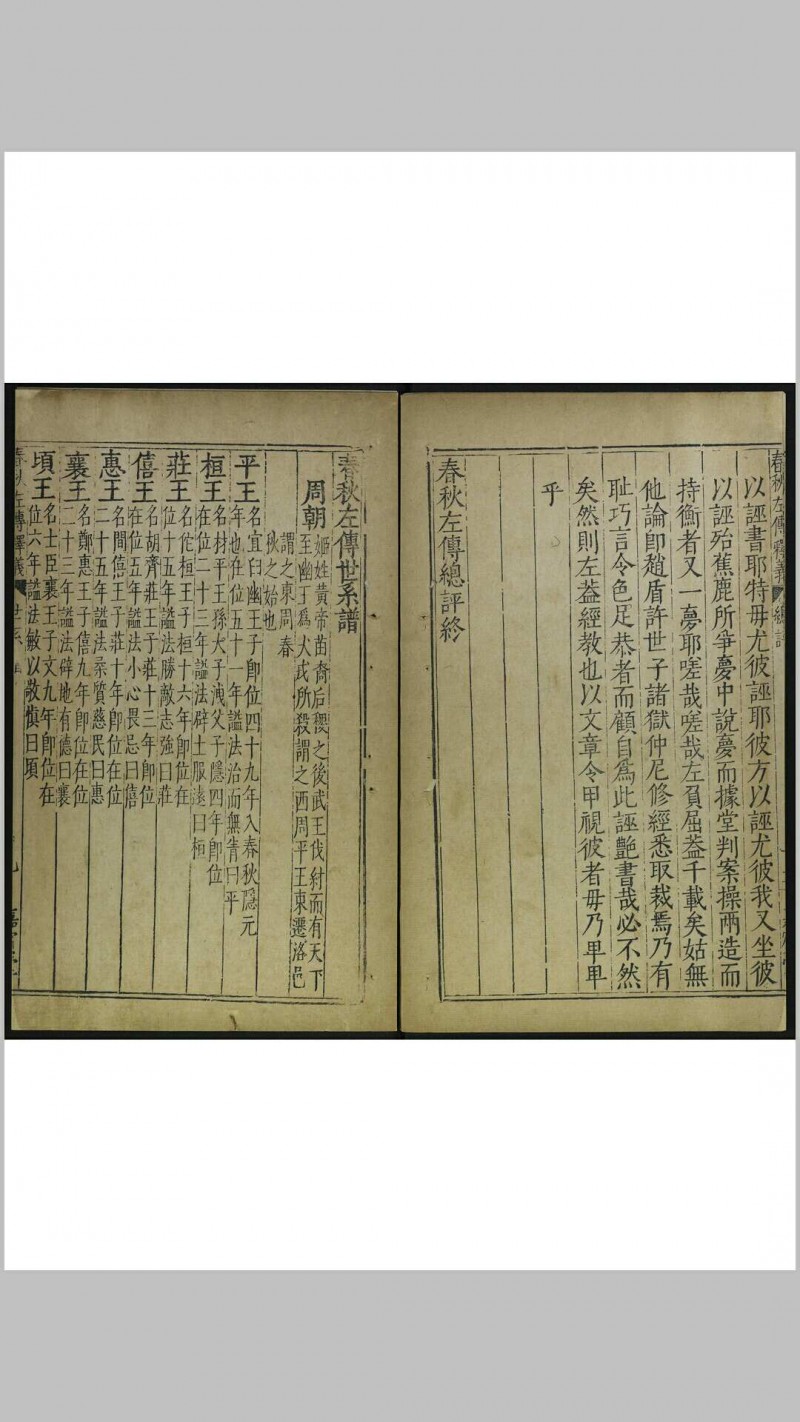 春秋左傳釋義 總評
以誣書耶特毋尤彼誣耶彼方以誣尤彼我又坐彼
以誣殆蕉鹿所爭夢中說夢而據堂判案操兩造而
持衡者又一夢耶嗟哉嗟哉左負屈葢千載矣姑無
他論卽趙盾許世子諸獄仲尼修經悉取裁焉乃有
耻巧言令色足恭者而顧自爲此誣艶書哉必不然
矣然則左葢經教也以文章令甲視彼者毋乃甲甲
乎
春秋左傳總評終
春秋左傳世系譜
周朝 姬姓黃帝苗裔后稷之後武王伐紂而有天下
至幽丁爲犬戎所殺謂之西周平王東遷洛邑
謂之東周春
秋之始也
平王 名宜臼幽王子卽位四十九年入春秋隱元
年也在位五十一年謚法治而無眚曰平
桓王 名林平王孫大子洩父子隱四年卽位
在位二十三年謚法辟土服遠曰桓
莊王 名佗桓王子桓十六年卽位在
位十五年謚法勝敵志強曰莊
僖王 名胡齊莊王子莊十三年卽位
在位五年謚法小心畏忌曰僖
惠王 名閬僖王子莊十年卽位在位
二十五年謚法柔質慈民曰惠
襄王 名鄭惠王子僖九年卽位在位
三十三年謚法辟地有德曰襄
頃王 名士臣襄王子文九年卽位在
位六年謚法敏以敬慎曰頃
春秋左傳釋義 世系